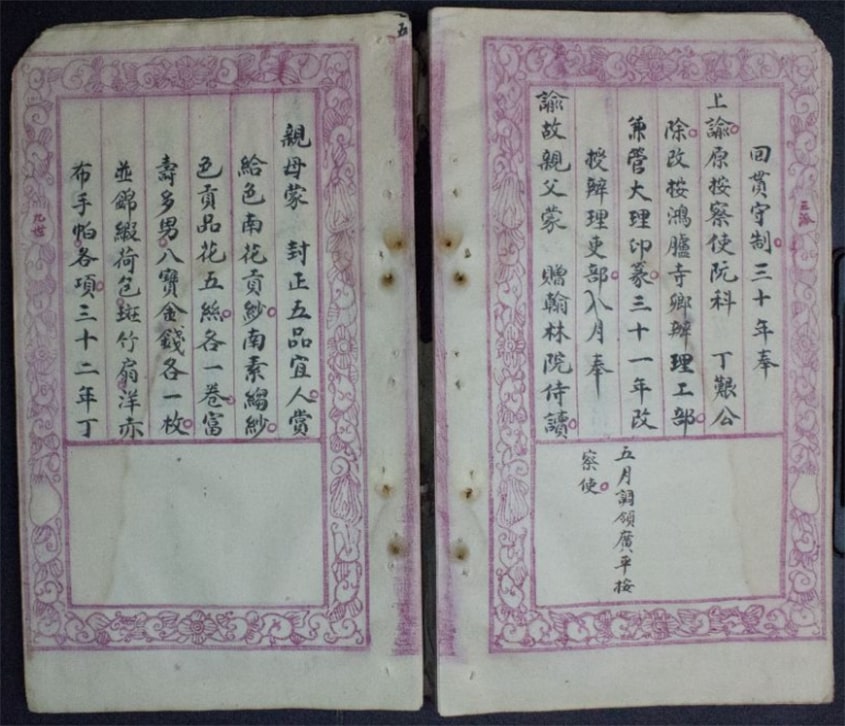 回貫守制三十年奉
上諭原按察使阮科 丁艱公
除改授鴻臚寺卿辦理工部
兼管大理印篆三十一年改
授辦理吏部八月奉
諭故親父蒙 贈翰林院侍讀
五月調領廣平按
察使
三派
親母蒙 封正五品宜人賞
給色南花貢紗南素縐紗
色貢品花五絲各一卷富
壽多男八寶金錢各一枚
並錦緞荷包斑竹扇洋赤
布手帕各項三十二年丁
九世
五